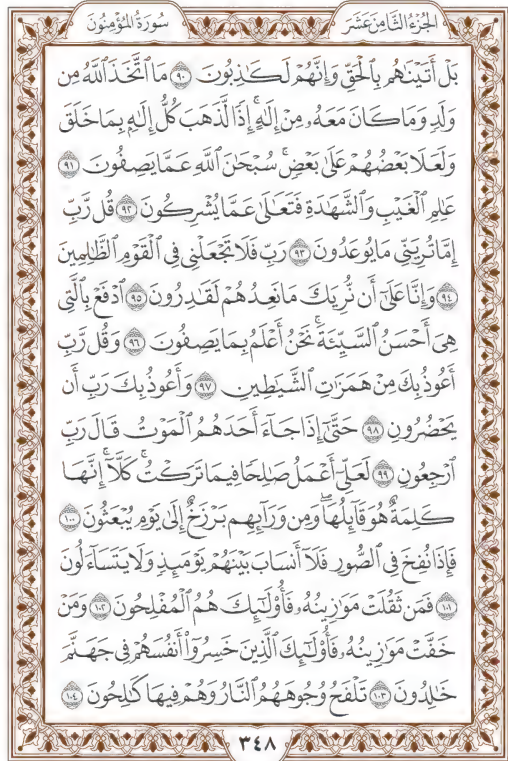 الجُزْءُ الثَّامِنَ عَشَرَ
سُورَةُ المُؤْمِنُونَ
بَلْ أَتَيْنَٰهُم بِٱلْحَقِّ وَإِنَّهُمْ لَكَٰذِبُونَ ٩٠ مَا ٱتَّخَذَ ٱللَّهُ مِن
وَلَدٖ وَمَا كَانَ مَعَهُۥ مِنْ إِلَٰهٍۚ إِذٗا لَّذَهَبَ كُلُّ إِلَٰهِۭ بِمَا خَلَقَ
وَلَعَلَا بَعْضُهُمْ عَلَىٰ بَعْضٖۚ سُبْحَٰنَ ٱللَّهِ عَمَّا يَصِفُونَ ٩١
عَٰلِمِ ٱلْغَيْبِ وَٱلشَّهَٰدَةِ فَتَعَٰلَىٰ عَمَّا يُشْرِكُونَ ٩٢ قُل رَّبِّ
إِمَّا تُرِيَنِّي مَا يُوعَدُونَ ٩٣ رَبِّ فَلَا تَجْعَلْنِي فِي ٱلْقَوْمِ ٱلظَّٰلِمِينَ
٩٤ وَإِنَّا عَلَىٰٓ أَن نُّرِيَكَ مَا نَعِدُهُمْ لَقَٰدِرُونَ ٩٥ ٱدْفَعْ بِٱلَّتِي
هِيَ أَحْسَنُ ٱلسَّيِّئَةَۚ نَحْنُ أَعْلَمُ بِمَا يَصِفُونَ ٩٦ وَقُل رَّبِّ
أَعُوذُ بِكَ مِنْ هَمَزَٰتِ ٱلشَّيَٰطِينِ ٩٧ وَأَعُوذُ بِكَ رَبِّ أَن
يَحْضُرُونِ ٩٨ حَتَّىٰٓ إِذَا جَآءَ أَحَدَهُمُ ٱلْمَوْتُ قَالَ رَبِّ
ٱرْجِعُونِ ٩٩ لَعَلِّيٓ أَعْمَلُ صَٰلِحٗا فِيمَا تَرَكْتُۚ كَلَّآۚ إِنَّهَا
كَلِمَةٌ هُوَ قَآئِلُهَاۖ وَمِن وَرَآئِهِم بَرْزَخٌ إِلَىٰ يَوْمِ يُبْعَثُونَ ١٠٠
فَإِذَا نُفِخَ فِي ٱلصُّورِ فَلَآ أَنسَابَ بَيْنَهُمْ يَوْمَئِذٖ وَلَا يَتَسَآءَلُونَ
١٠١ فَمَن ثَقُلَتْ مَوَٰزِينُهُۥ فَأُوْلَٰٓئِكَ هُمُ ٱلْمُفْلِحُونَ ١٠٢ وَمَنْ
خَفَّتْ مَوَٰزِينُهُۥ فَأُوْلَٰٓئِكَ ٱلَّذِينَ خَسِرُوٓاْ أَنفُسَهُمْ فِي جَهَنَّمَ
خَٰلِدُونَ ١٠٣ تَلْفَحُ وُجُوهَهُمُ ٱلنَّارُ وَهُمْ فِيهَا كَٰلِحُونَ ١٠٤
٣٤٨